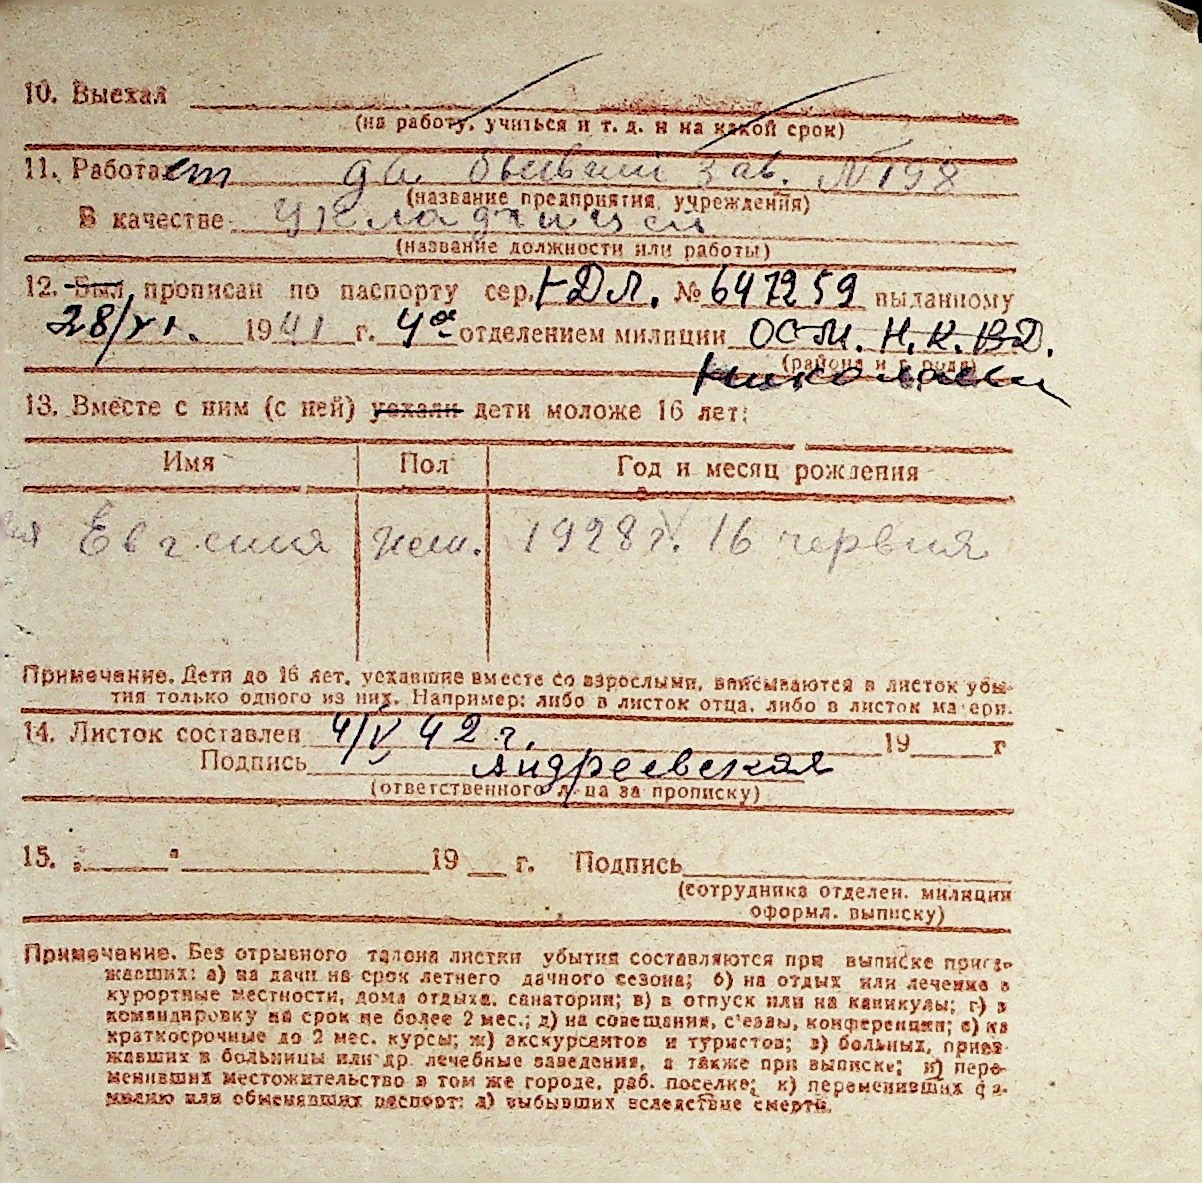 10. Выехал
(на работу, учиться и т. д. и на какой срок)
11. Работает бывший зав. №198
(название предприятия, учреждения)
В качестве укладчицей
(название должности или работы)
12. Был прописан по паспорту сер. № 647259 выданному
28/VI. 1941 г. 4ое отделением милиции О С М. Н. К. В Д.
(района и города)
Николаеси
13. Вместе с ним (с ней) уехали дети моложе 16 лет:
Имя Пол Год и месяц рождения
Евгения жен. 1928 г. 16 червня
Примечание. Дети до 16 лет, уехавшие вместе со взрослыми, вписываются в листок убы-
тия только одного из них. Например: либо в листок отца, либо в листок матери.
14. Листок составлен 4/V 42 г. 19 г
Подпись Андреевская
(ответственного лица за прописку)
15. „ " 19 г. Подпись
(сотрудника отделен. милиции
оформл. выписку)
Примечание. Без отрывного талона листки убытия составляются при выписке приез-
жавших: а) на дачи на срок летнего дачного сезона; б) на отдых или лечение в
курортные местности, дома отдыха, санатории; в) в отпуск или на каникулы; г) в
командировку на срок не более 2 мес.; д) на совещания, с'езды, конференции; е) на
краткосрочные до 2 мес. курсы; ж) экскурсантов и туристов; з) больных, приез-
жавших в больницы или др. лечебные заведения, а также при выписке; и) пере-
менивших местожительство в том же городе, раб. поселке; к) переменивших фа-
милию или обменявших паспорт; л) выбывших вследствие смерти.